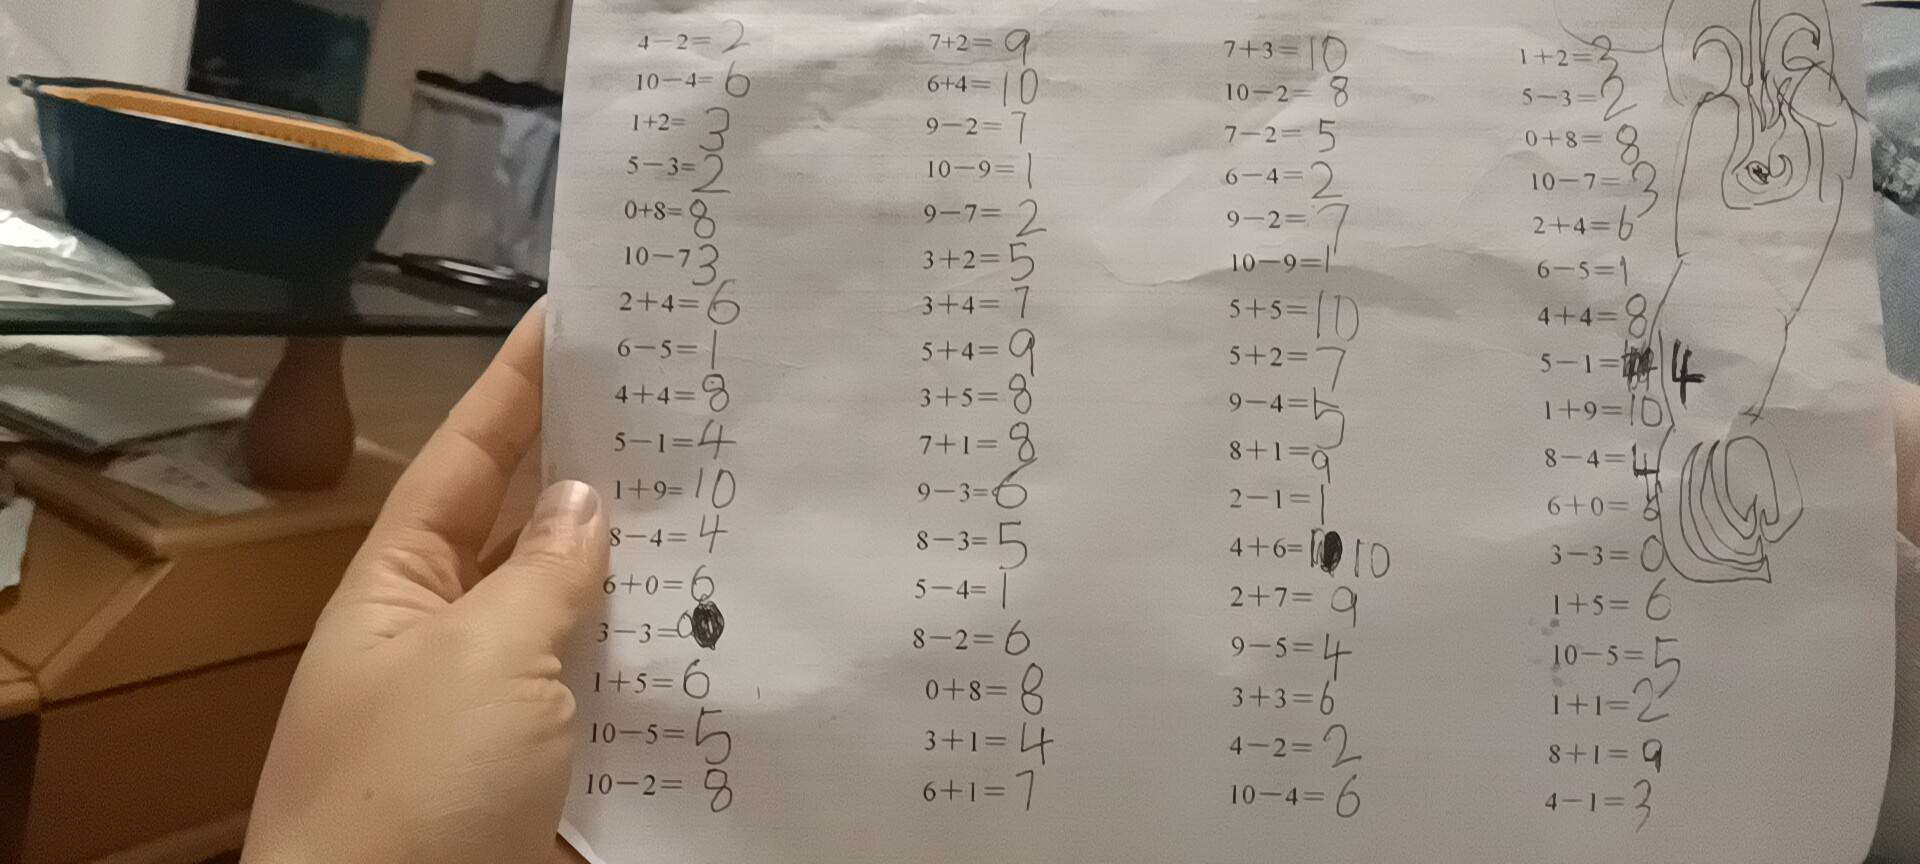 4-2=2
10-4=6
1+2=3
5-3=2
0+8=8
10-7 3
2+4=6
6-5=1
4+4=8
5-1=4
1+9=10
8-4=4
6+0=6
3-3=0
1+5=6
10-5=5
10-2=8
7+2=9
6+4=10
9-2=7
10-9=1
9-7=2
3+2=5
3+4=7
5+4=9
3+5=8
7+1=8
9-3=6
8-3=5
5-4=1
8-2=6
0+8=8
3+1=4
6+1=7
7+3=10
10-2=8
7-2=5
6-4=2
9-2=7
10-9=1
5+5=10
5+2=7
9-4=5
8+1=9
2-1=1
4+6=10
2+7=9
9-5=4
3+3=6
4-2=2
10-4=6
1+2=3
5-3=2
0+8=8
10-7=3
2+4=6
6-5=1
4+4=8
5-1=4
1+9=10
8-4=4
6+0=
3-3=0
1+5=6
10-5=5
1+1=2
8+1=9
4-1=3